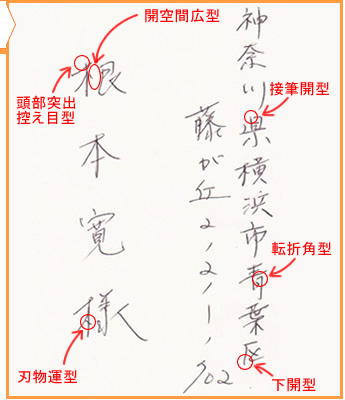 神奈川県横浜市青葉区
藤が丘2,2,1,702
根本寛様
開空間広型
頭部突出
控え目型
接筆開型
転折角型
刃物運型
下開型